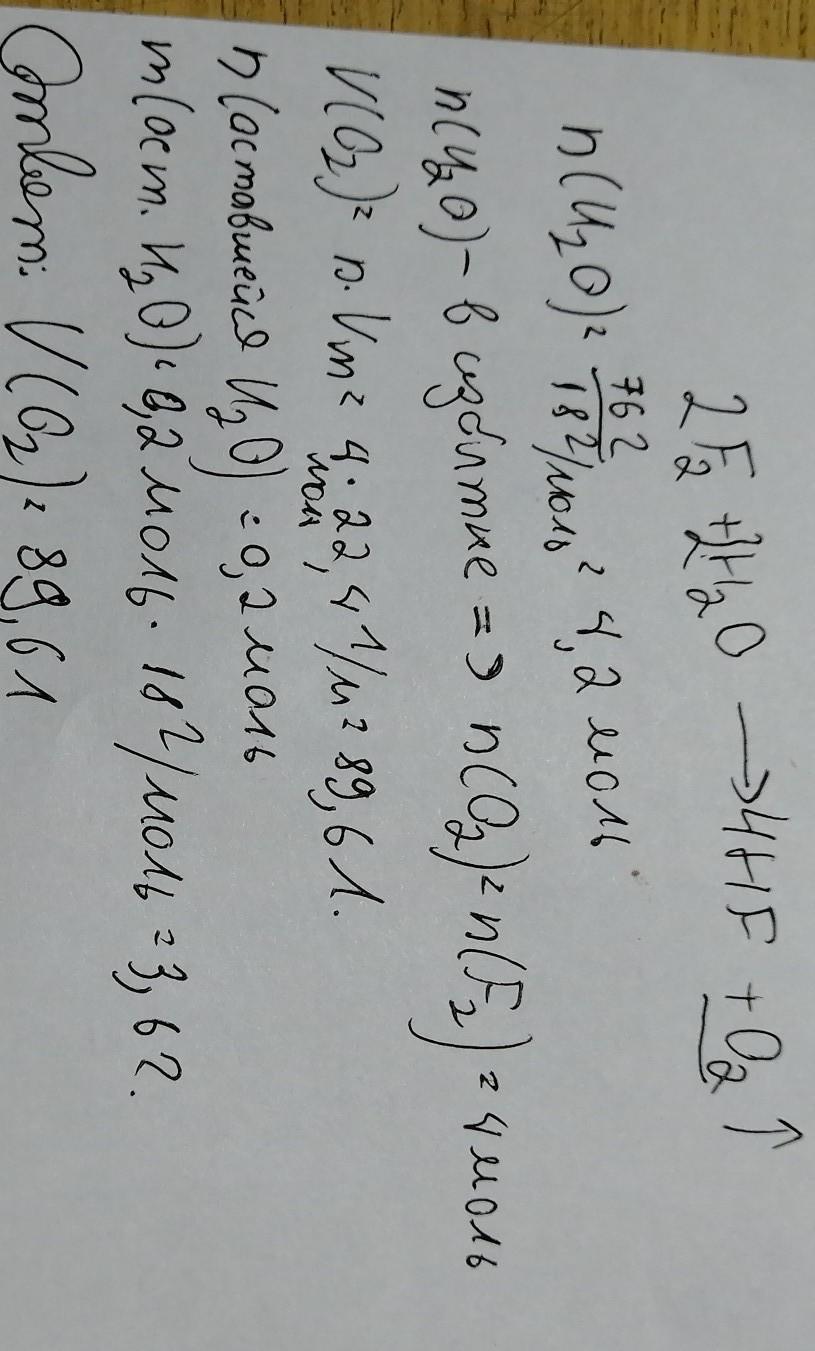 2F₂ + 2H₂O → 4HF + O₂↑
n(H₂O) = 76г / 18г/моль = 4,2 моль
n(H₂O) - в избытке => n(O₂) = n(F₂) = 4 моль
V(O₂) = n · Vm = 4 моль · 22,4 л/м = 89,6 л.
n(оставшейся H₂O) = 0,2 моль
m(ост. H₂O) = 0,2 моль · 18 г/моль = 3,6 г.
Ответ: V(O₂) = 89,6 л